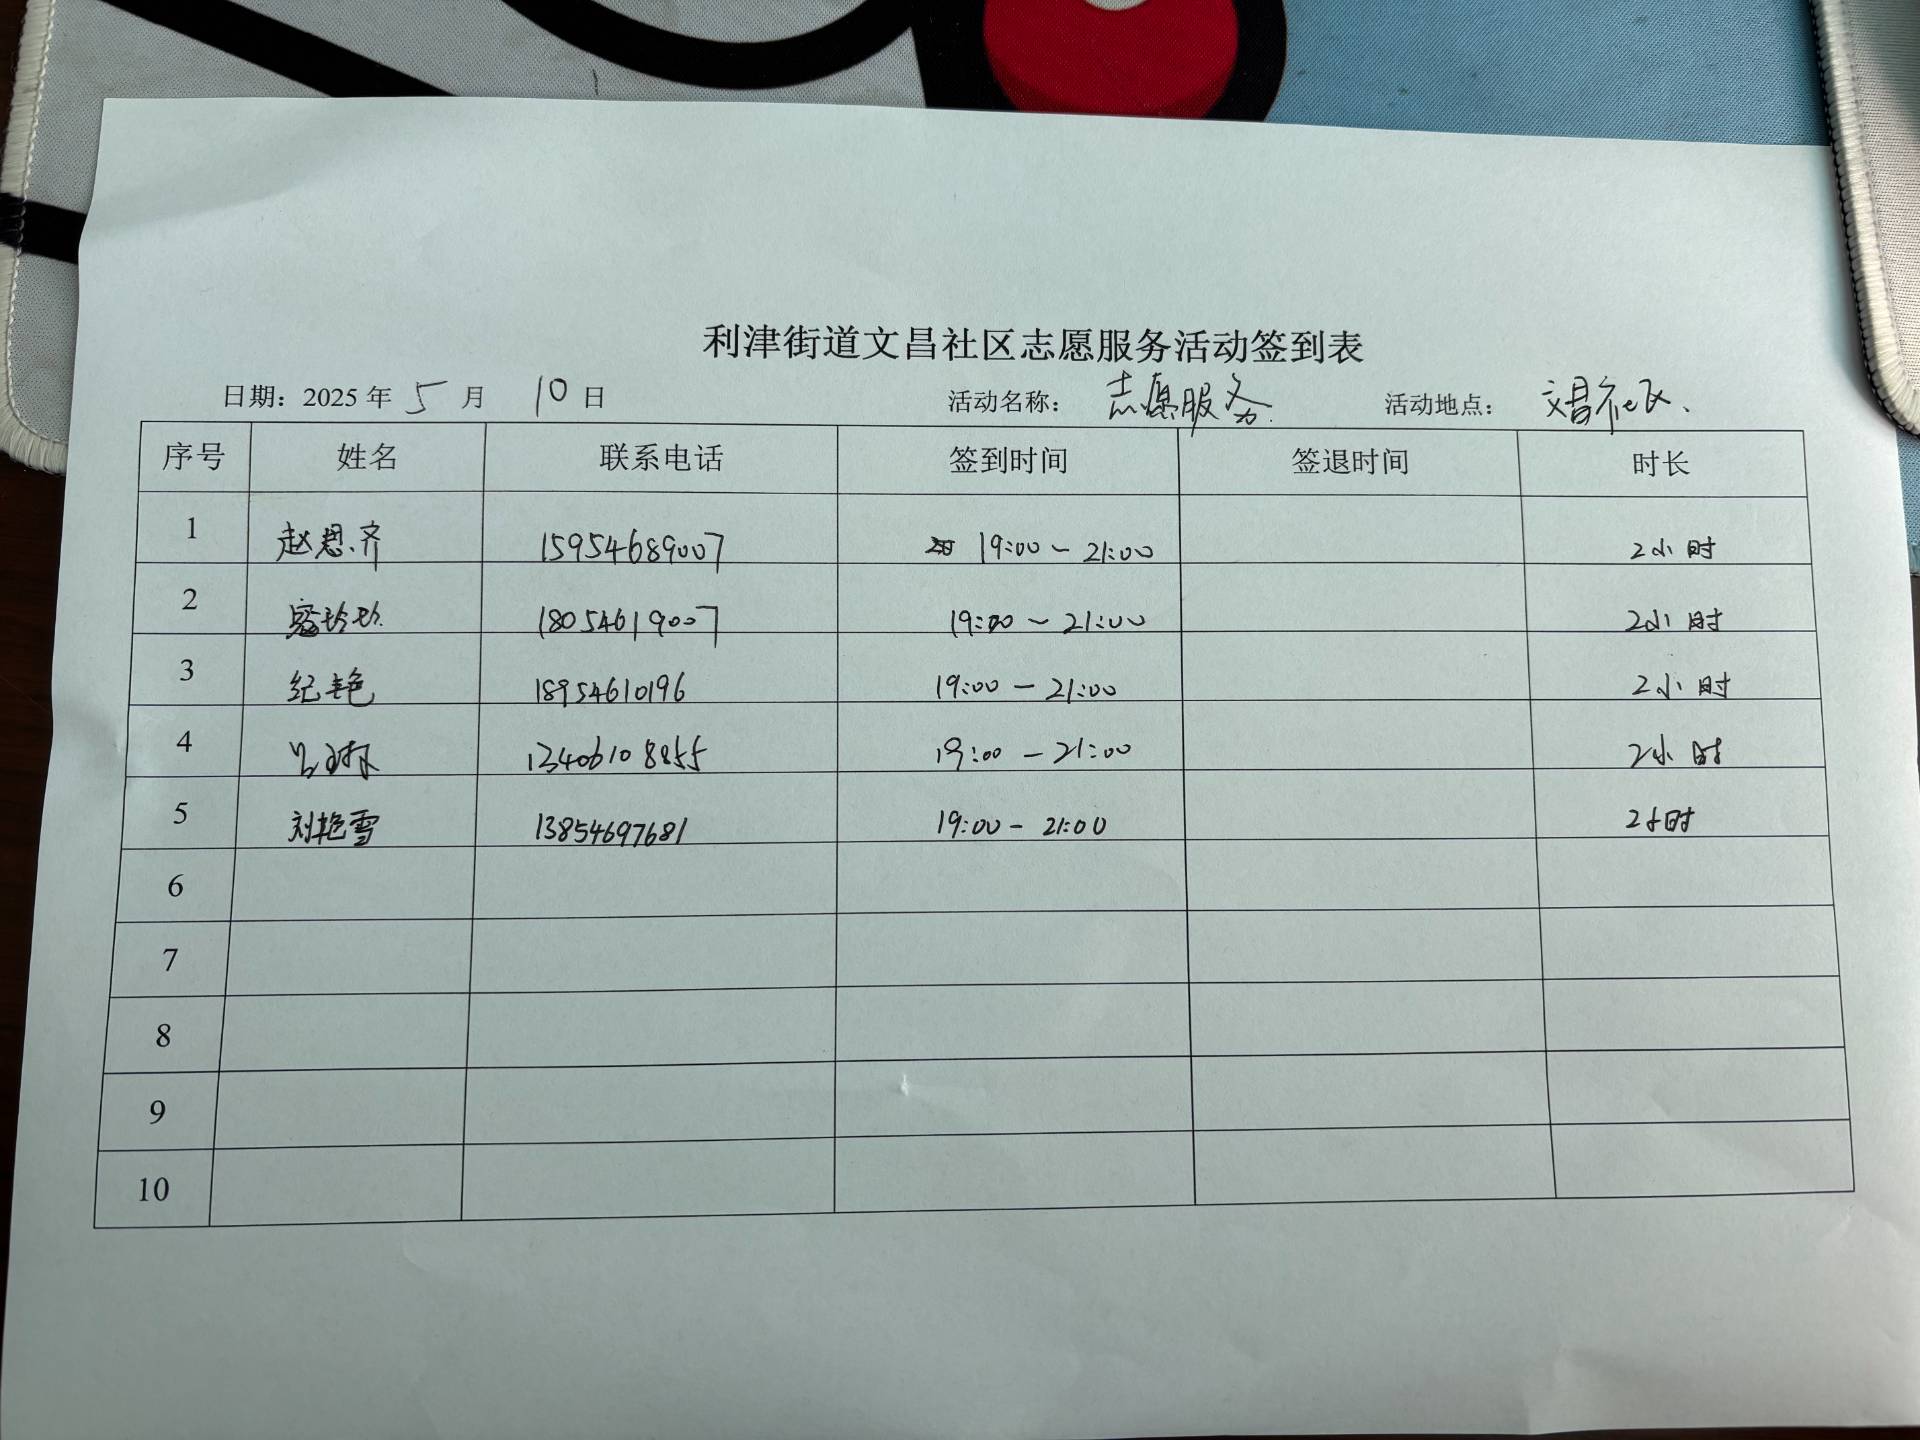 利津街道文昌社区志愿服务活动签到表
日期：2025 年 5 月 10 日 活动名称： 志愿服务 活动地点： 文昌社区、
序号 姓名 联系电话 签到时间 签退时间 时长
1 赵思齐 15954689007 19:00～21:00 2小时
2 18054619007 19:00～21:00 2小时
3 纪艳 18954610196 19:00－21:00 2小时
4 13406108855 19:00－21:00 2小时
5 刘艳雪 13854697681 19:00－21:00 2小时
6
7
8
9
10